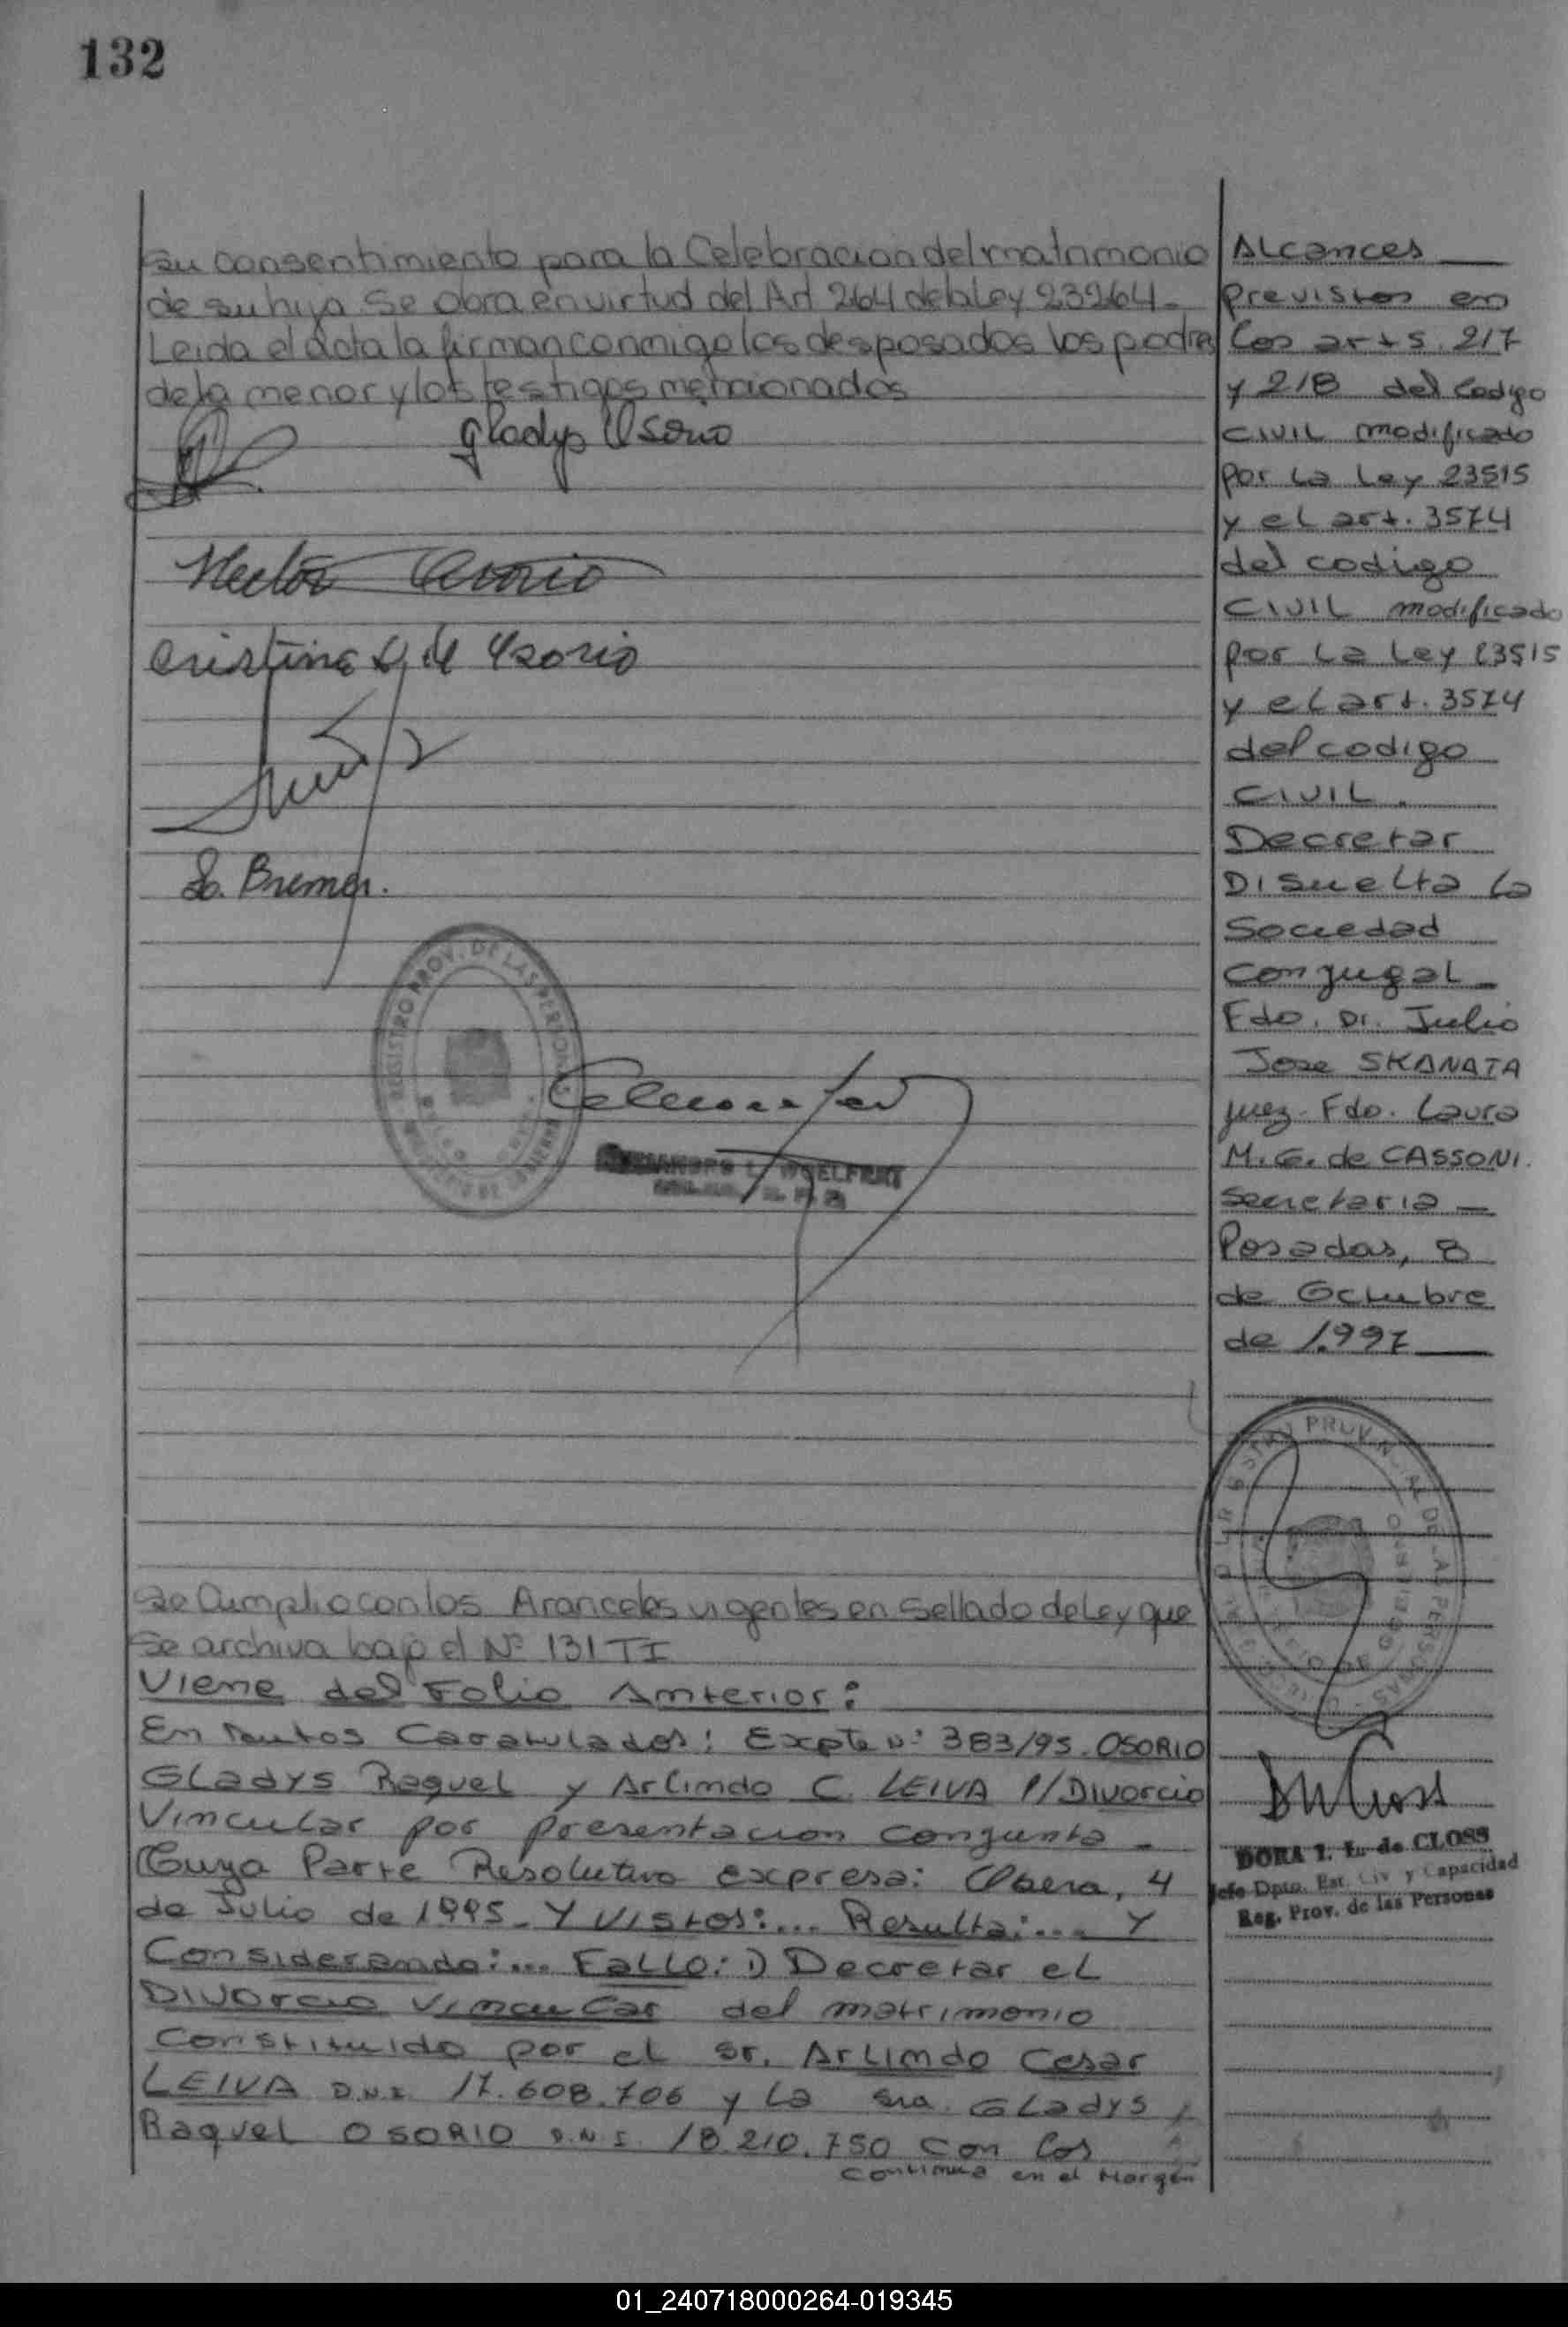 132
su consentimiento para la Celebracion del matrimonio
de su hija. Se obra en virtud del Art 264 de la Ley 23264.-
Leida el acta la firman conmigo los desposados los padres
de la menor y los testigos mencionados
Gladys Osorio
Hector Osorio
Cristina de Osorio
Bremer.
REGISTRO PROV. DE LAS PERSONAS
WOELFERT
Se Cumplio con los Aranceles vigentes en Sellado de Ley que
se archiva bajo el Nº 131 TI
Viene del Folio Anterior:
En Autos Caratulados: Expte Nº 383/95. OSORIO
GLadys Raquel y ArLindo C. LEIVA P/Divorcio
Vincular por presentacion conjunta -
Cuya Parte Resolutiva expresa: Obera, 4
de Julio de 1995. Y Vistos:... Resulta:... Y
Considerando:... FaLLo: 1) Decretar eL
Divorcio Vincular del matrimonio
Constituido por el sr. ArLindo Cesar
LEIVA D.N.I. 17.608.706 y La sra. GLadys
Raquel OSORIO D.N.I. 18.210.750 con los
Continua en el Margen
ALcances
previstos en
los arts. 217
y 218 del Codigo
CIVIL modificado
por La Ley 23515
y eL art. 3574
del codigo
CIVIL modificado
por La Ley 23515
y eL art. 3574
del codigo
CIVIL.
Decretar
Disuelta la
Sociedad
Conyugal -
Fdo. Dr. Julio
Jose SKANATA
juez. Fdo. Laura
M. G. de CASSONI.
Secretaria -
Posadas, 8
de Octubre
de 1.997
DORA I. L. de CLOSS
Jefe Dpto. Est. Civ y Capacidad
Reg. Prov. de las Personas
01_240718000264-019345